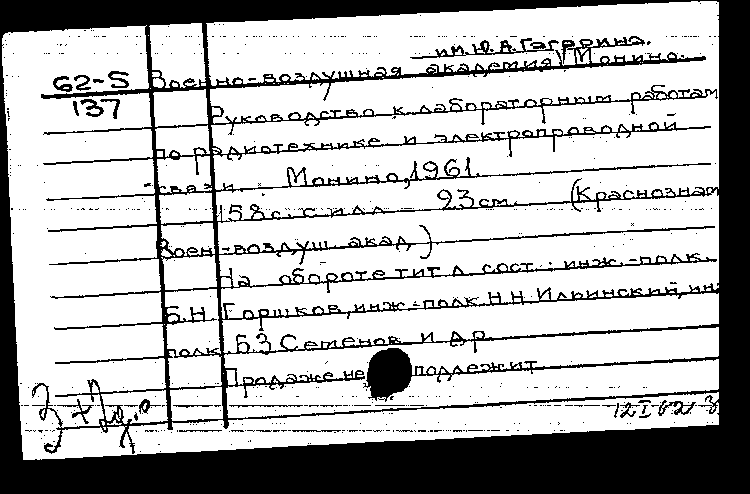 им. Ю. А. Гагарина.
62-5 Военно-воздушная академия, Монино.
137
Руководство к лабораторным работам
по радиотехнике и электропроводной
связи. Монино, 1961.
158 с. с илл. 23 см. (Краснознам
Воен-воздуш. акад.)
На обороте тит. л. сост.: инж.-полк.
Б.Н. Горшков, инж.-полк. Н.Н. Ильинский, инж
полк. Б.З. Семенов и др.
Продаже не подлежит
12 I 62